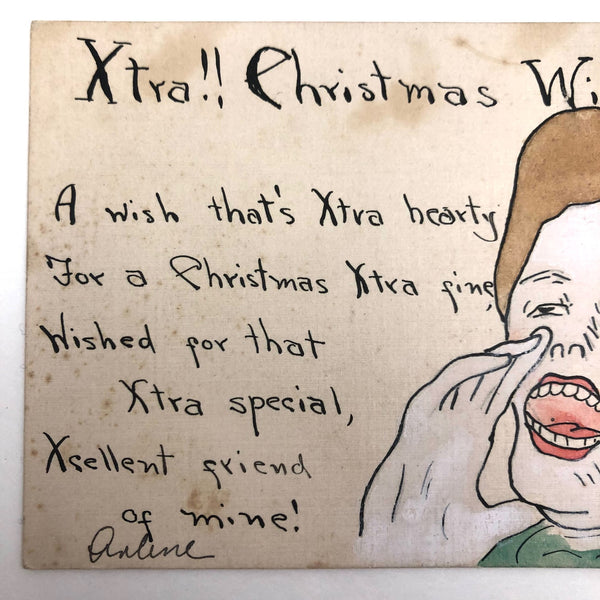 Xtra!! Christmas Wi
A wish that's Xtra hearty
For a Christmas Xtra fine,
Wished for that
Xtra special,
Xcellent friend
of mine!
Arlene